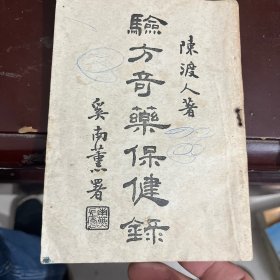 陳渡人著
驗方奇藥保健錄
奚南薰署